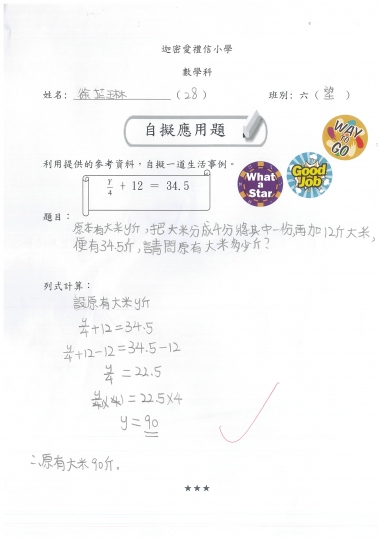 迦密愛禮信小學
數學科
姓名： 徐芷琳 （ 28 ） 班別：六（ 望 ）
自擬應用題
WAY TO GO
利用提供的參考資料，自擬一道生活事例。
Good Job
What a Star
y/4 + 12 = 34.5
題目：
原本有大米y斤，把大米分成4份將其中一份再加12斤大米，
便有34.5斤，請問原有大米多少斤？
列式計算：
設原有大米y斤
y/4+12=34.5
y/4+12-12=34.5-12
y/4=22.5
y/4(4)=22.5×4
y=90
∴原有大米90斤。
★★★